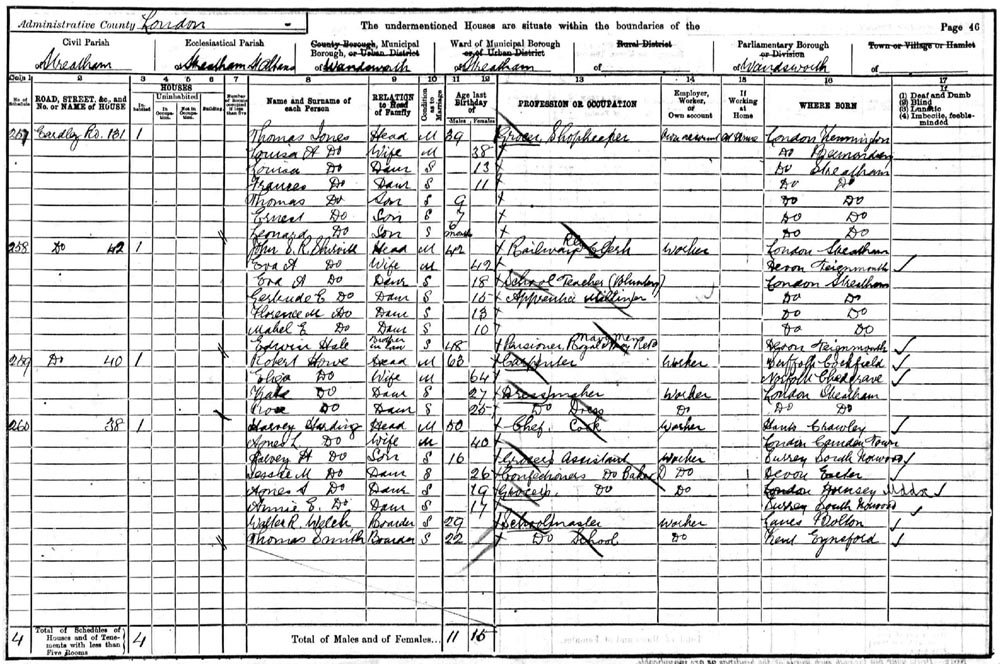 Administrative County London
The undermentioned Houses are situate within the boundaries of the
Page 46
Civil Parish
of Streatham
Ecclesiastical Parish
of Streatham St Albans
County Borough, Municipal Borough, or Urban District
of Wandsworth
Ward of Municipal Borough or of Urban District
of Streatham
Rural District
of
Parliamentary Borough or Division
of Wandsworth
Town or Village or Hamlet
of
Cols 1 2 3 4 5 6 7 8 9 10 11 12 13 14 15 16 17
No. of Schedule
ROAD, STREET, &c., and No. or NAME of HOUSE
HOUSES
Inhabited
Uninhabited
In Occupation
Not in Occupation
Building
Name and Surname of each Person
RELATION to Head of Family
Condition as to Marriage
Age last Birthday of
Males Females
PROFESSION OR OCCUPATION
Employer, Worker, or Own account
If Working at Home
WHERE BORN
If (1) Deaf and Dumb (2) Blind (3) Lunatic (4) Imbecile, feeble-minded
257 131 1 Thomas Jones Head M 39 Shopkeeper Own account At Home London
Louisa A Do Wife M 38 Do Bermondsey
Louisa Do Daur S 13 Do Streatham
Frances Do Daur S 11 Do Do
Thomas Do Son S 9 Do Do
Ernest Do Son S 7 Do Do
Leonard Do Son S 6 months Do Do
258 Do 42 1 John S. R. Head M 42 Railway Clerk Worker London Streatham
Eva A Do Wife M 42 Devon Teignmouth
Eva A Do Daur S 18 School Teacher (Voluntary) London Streatham
Gertrude E Do Daur S 15 Apprentice Do Do
Florence M Do Daur S 13 Do Do
Mabel E Do Daur S 10 Do Do
Edwin Hale Brother in law S 48 Pensioner Royal Devon Teignmouth
259 Do 40 1 Robert Howe Head M 63 Carpenter Worker Suffolk
Eliza Do Wife M 64 Norfolk Chedgrave
Kate Do Daur S 27 Dressmaker Worker London Streatham
Rose Do Daur S 25 Do Dress Do Do Do
260 38 1 Harvey Harding Head M 50 Chef. Cook Worker Hants Crawley
Agnes L. Do Wife M 40 London Camden Town
Harvey H Do Son S 16 Grocers Assistant Worker Surrey South Norwood
Jessie M Do Daur S 26 Confectioners Do Baker Do Devon Exeter
Agnes S Do Daur S 19 Grocers Do Do London Hornsey Mddx
Annie E. Do Daur S 17 Surrey South Norwood
Walter R. Welch Boarder S 29 Schoolmaster Worker Lancs Bolton
Thomas Smith Boarder S 22 Do School Do Kent Eynsford
4
Total of Schedules of Houses and of Tenements with less than Five Rooms
4
Total of Males and of Females... 11 15